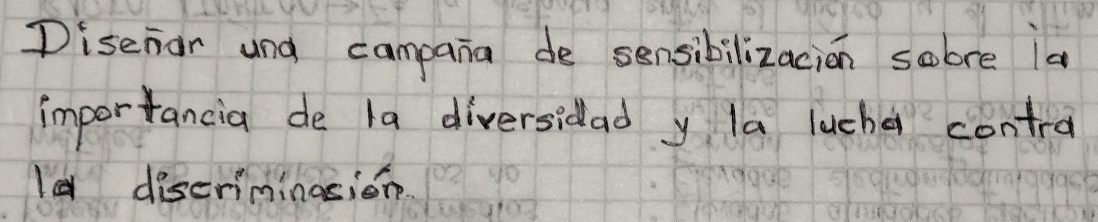 Diseñar una campaña de sensibilización sobre la
importancia de la diversidad y la lucha contra
la discriminasión.